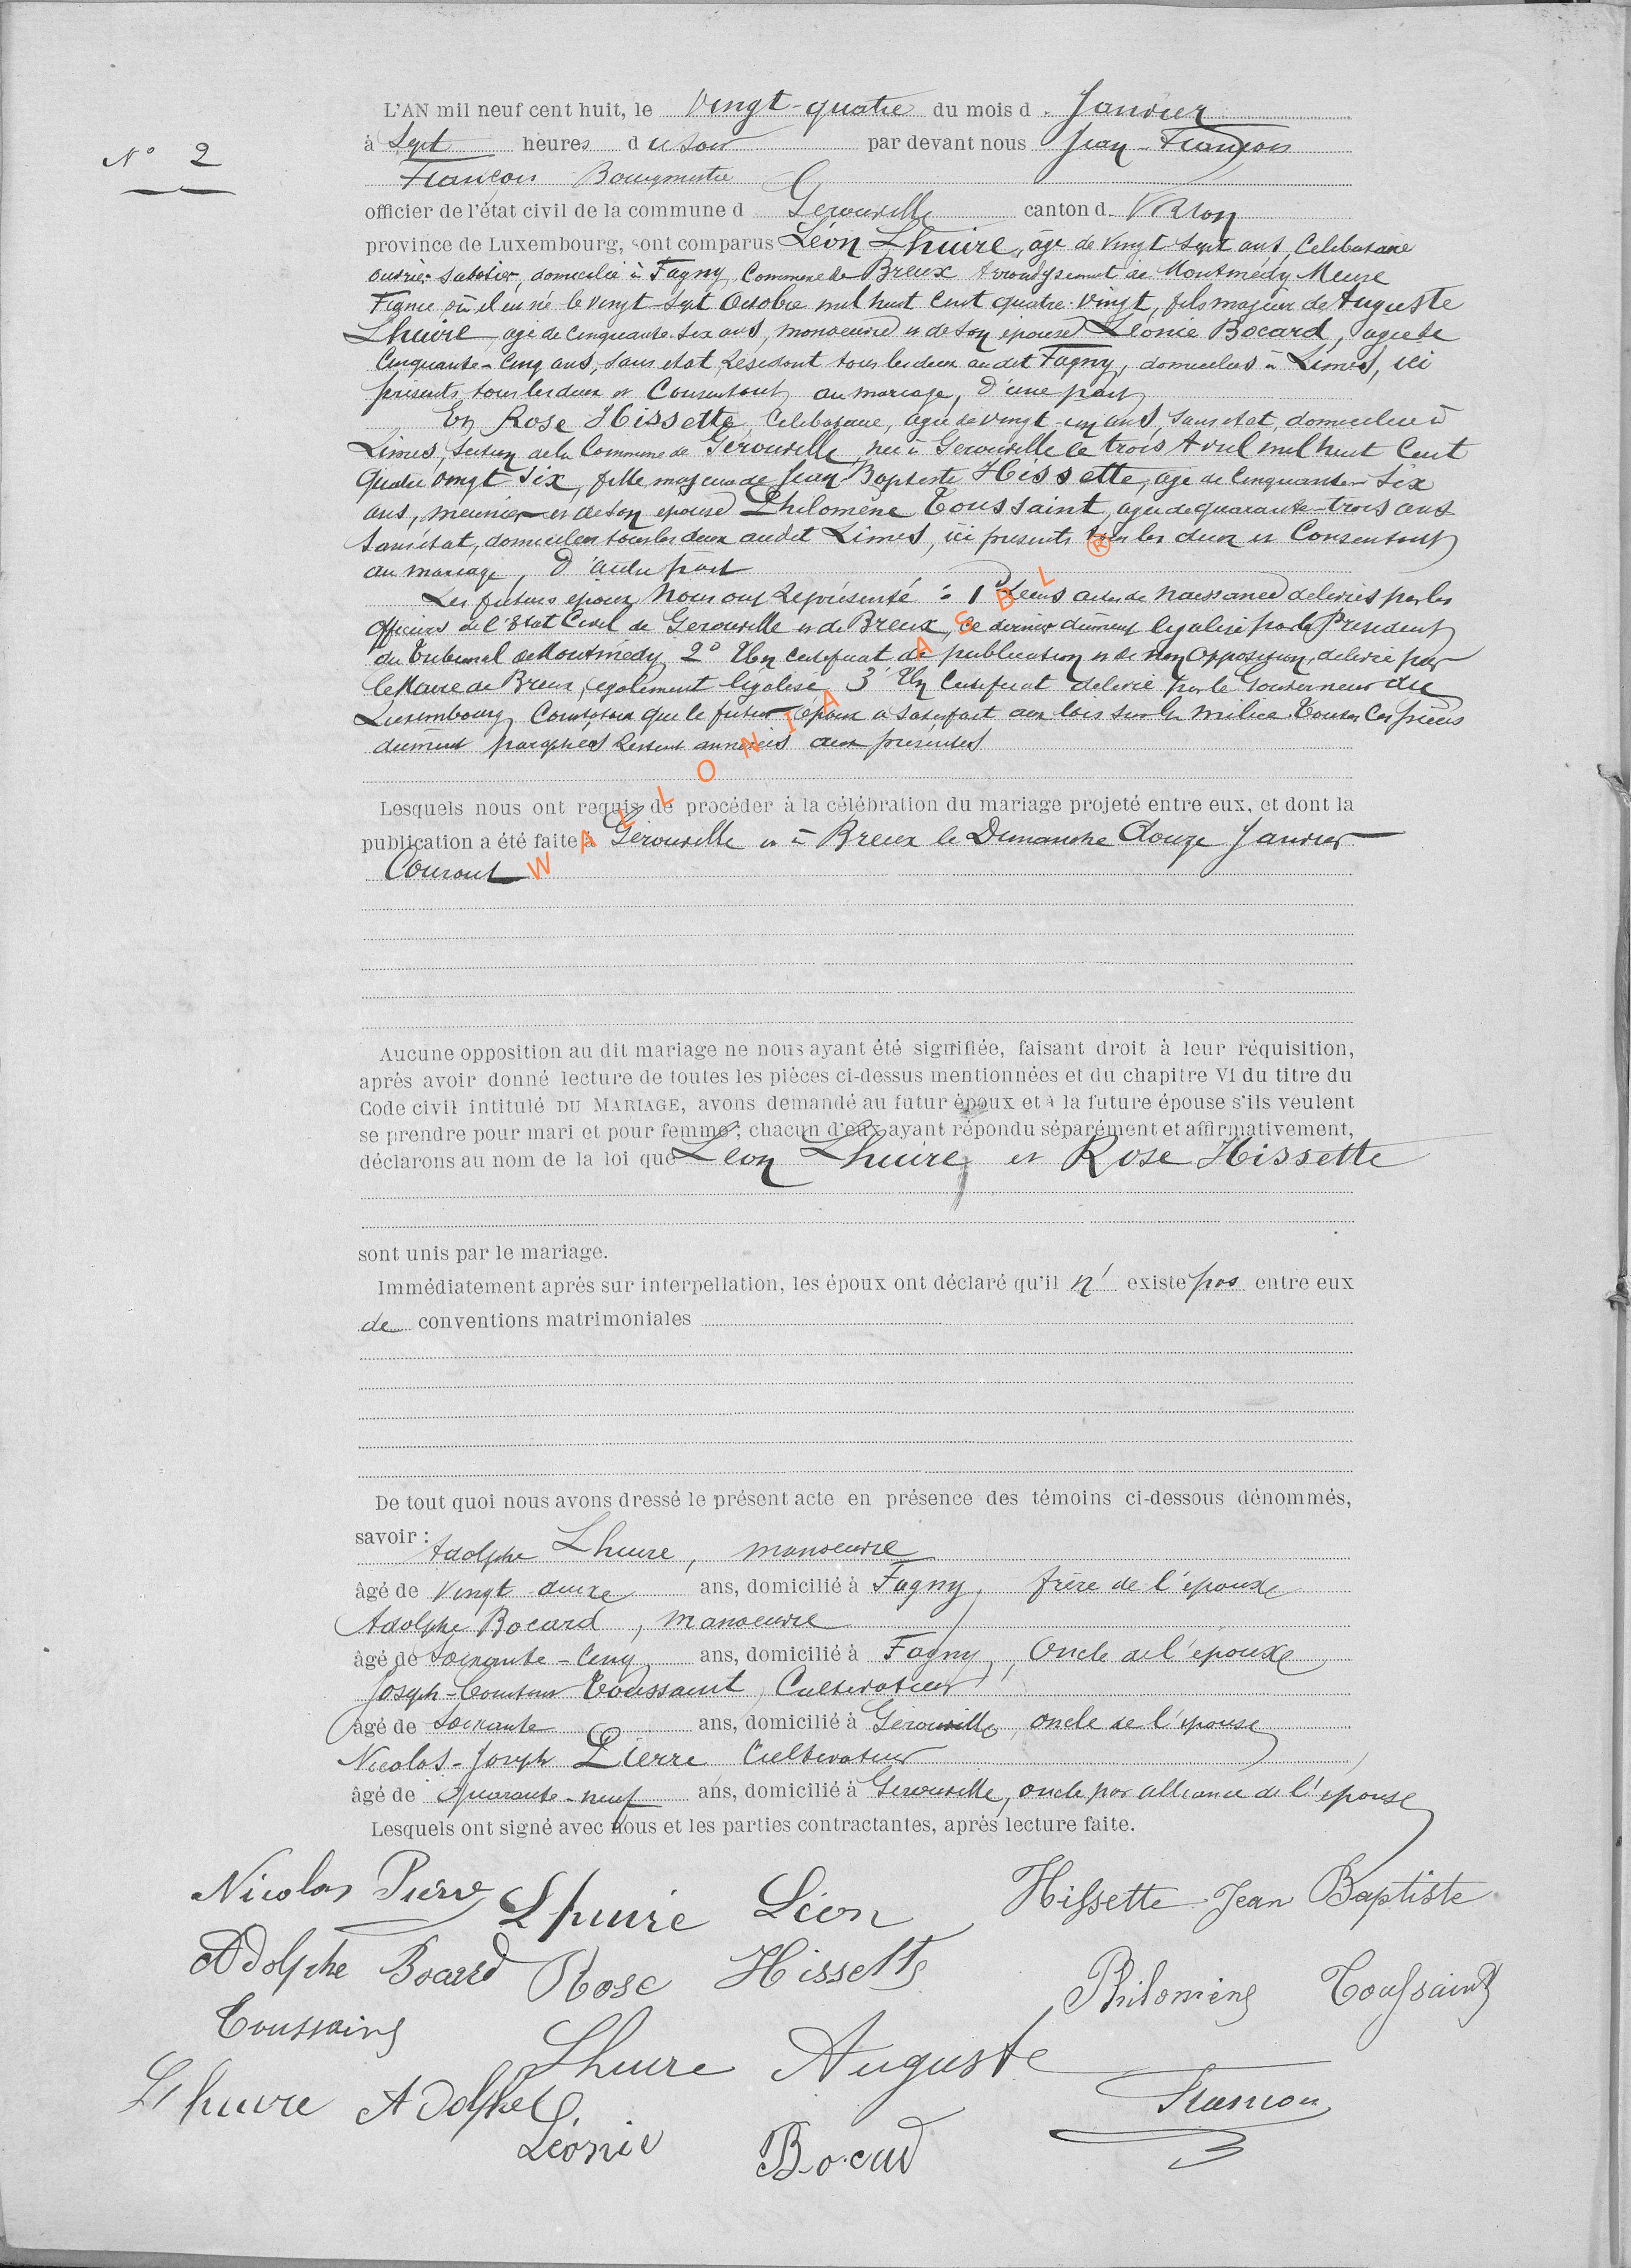 N° 2
L'AN mil neuf cent huit, le Vingt-quatre du mois d. Janvier
à Sept heures du soir par devant nous Jean-François
Francou Bourgmestre
officier de l'état civil de la commune d Gerouville canton d. Virton
province de Luxembourg, sont comparus Léon Lhuire, âgé de vingt sept ans, Celibataire
ouvrier sabotier, domicilié à Fagny, Commune de Breux Arrondissement de Montmédy Meuse
France où il est né le vingt-sept Octobre mil huit cent quatre-vingt, fils majeur de Auguste
Lhuire agé de cinquante six ans, manoeuvre et de son épouse Léonie Bocard, agée de
Cinquante-Cinq ans, sans etat Residant tous les deux audit Fagny, domiciliés à Limes, ici
présents tous les deux et Consentant au mariage, d'une part
Et Rose Hissette, Celibataire, agée de vingt-un ans, sans etat, domiciliée à
Limes, Section de la Commune de Gerouville, née à Gerouville le trois Avril mil huit Cent
Quatre vingt six, fille majeure de Jean Baptiste Hissette, agé de Cinquante-Six
ans, meunier et de son epouse Philomène Toussaint, agée de quarante-trois ans
sans état, domiciliés tous les deux audit Limes, ici presents tous les deux et Consentant
au mariage, d'autre part
Les futurs époux Nous ont Représenté : 1° Leurs actes de Naissance delivrés par les
Officiers de l'Etat Civil de Gerouville et de Breux, ce dernier dûment légalisé par le Président
du Tribunal de Montmédy 2° Un certificat de publication et de non Opposition, delivré par
le Maire de Breux, egalement légalisé 3° Un Certificat delivré par le Gouverneur du
Luxembourg Constatant que le futur époux a satisfait aux lois sur la milice. Toutes Ces pièces
dûment paraphées Restent annexées aux présentes
Lesquels nous ont requis de procéder à la célébration du mariage projeté entre eux, et dont la
publication a été faite à Gerouville et à Breux le Dimanche Douze Janvier
Courant
WALLONIA ASBL ®
Aucune opposition au dit mariage ne nous ayant été signifiée, faisant droit à leur réquisition,
après avoir donné lecture de toutes les pièces ci-dessus mentionnées et du chapitre VI du titre du
Code civil intitulé DU MARIAGE, avons demandé au futur époux et à la future épouse s'ils veulent
se prendre pour mari et pour femme ; chacun d'eux ayant répondu séparément et affirmativement,
déclarons au nom de la loi que Léon Lhuire et Rose Hissette
sont unis par le mariage.
Immédiatement après sur interpellation, les époux ont déclaré qu'il n' existe pas entre eux
de conventions matrimoniales
De tout quoi nous avons dressé le présent acte en présence des témoins ci-dessous dénommés,
savoir :
Adolphe Lhuire, manoeuvre
âgé de Vingt deux ans, domicilié à Fagny, frère de l'epoux
Adolphe Bocard, manoeuvre
âgé de Soixante-Cinq ans, domicilié à Fagny, Oncle de l'époux
Joseph-Constant Toussaint, Cultivateur
âgé de Soixante ans, domicilié à Gerouville, oncle de l'epouse
Nicolas-Joseph Pierre Cultivateur
âgé de Quarante-neuf ans, domicilié à Gerouville, oncle par alliance de l'epouse
Lesquels ont signé avec nous et les parties contractantes, après lecture faite.
Nicolas Pierre Lhuire Léon Hissette Jean Baptiste
Adolphe Bocard Rose Hissette Philomène Toussaint
Toussaint Lhuire Auguste
Lhuire Adolphe Francou
Léonie Bocard